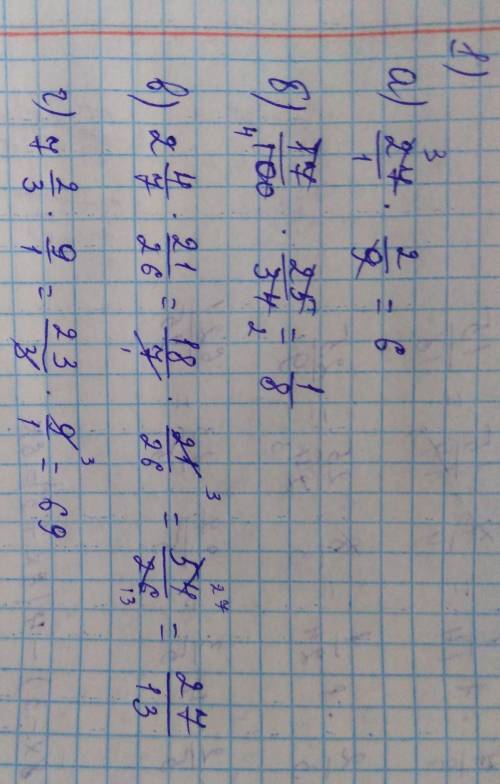 1)
а) 27/1 · 2/9 = 6
б) 17/100 · 25/34 = 1/8
в) 2 4/7 · 21/26 = 18/7 · 21/26 = 54/26 = 27/13
г) 7 2/3 · 9/1 = 23/3 · 9/1 = 69